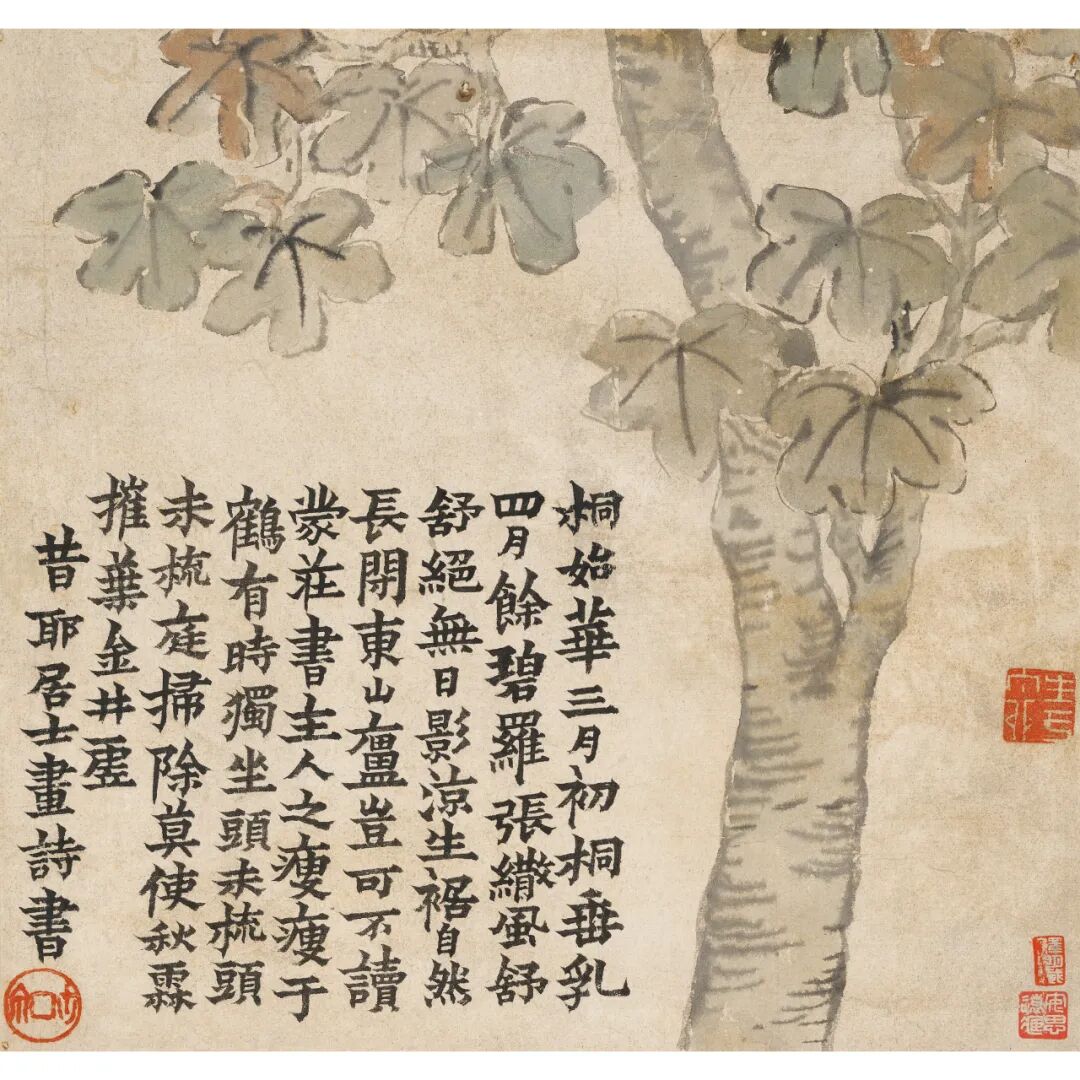 桐始華三月初桐垂乳
四月餘碧羅張繖風舒
舒絕無日影涼生裾自然
長閉東山廬豈可不讀
蒙莊書主人之瘦瘦于
鶴有時獨坐頭未梳頭
未梳庭掃除莫使秋霖
摧葉金井虛
昔耶居士畫詩書
安思遠藏